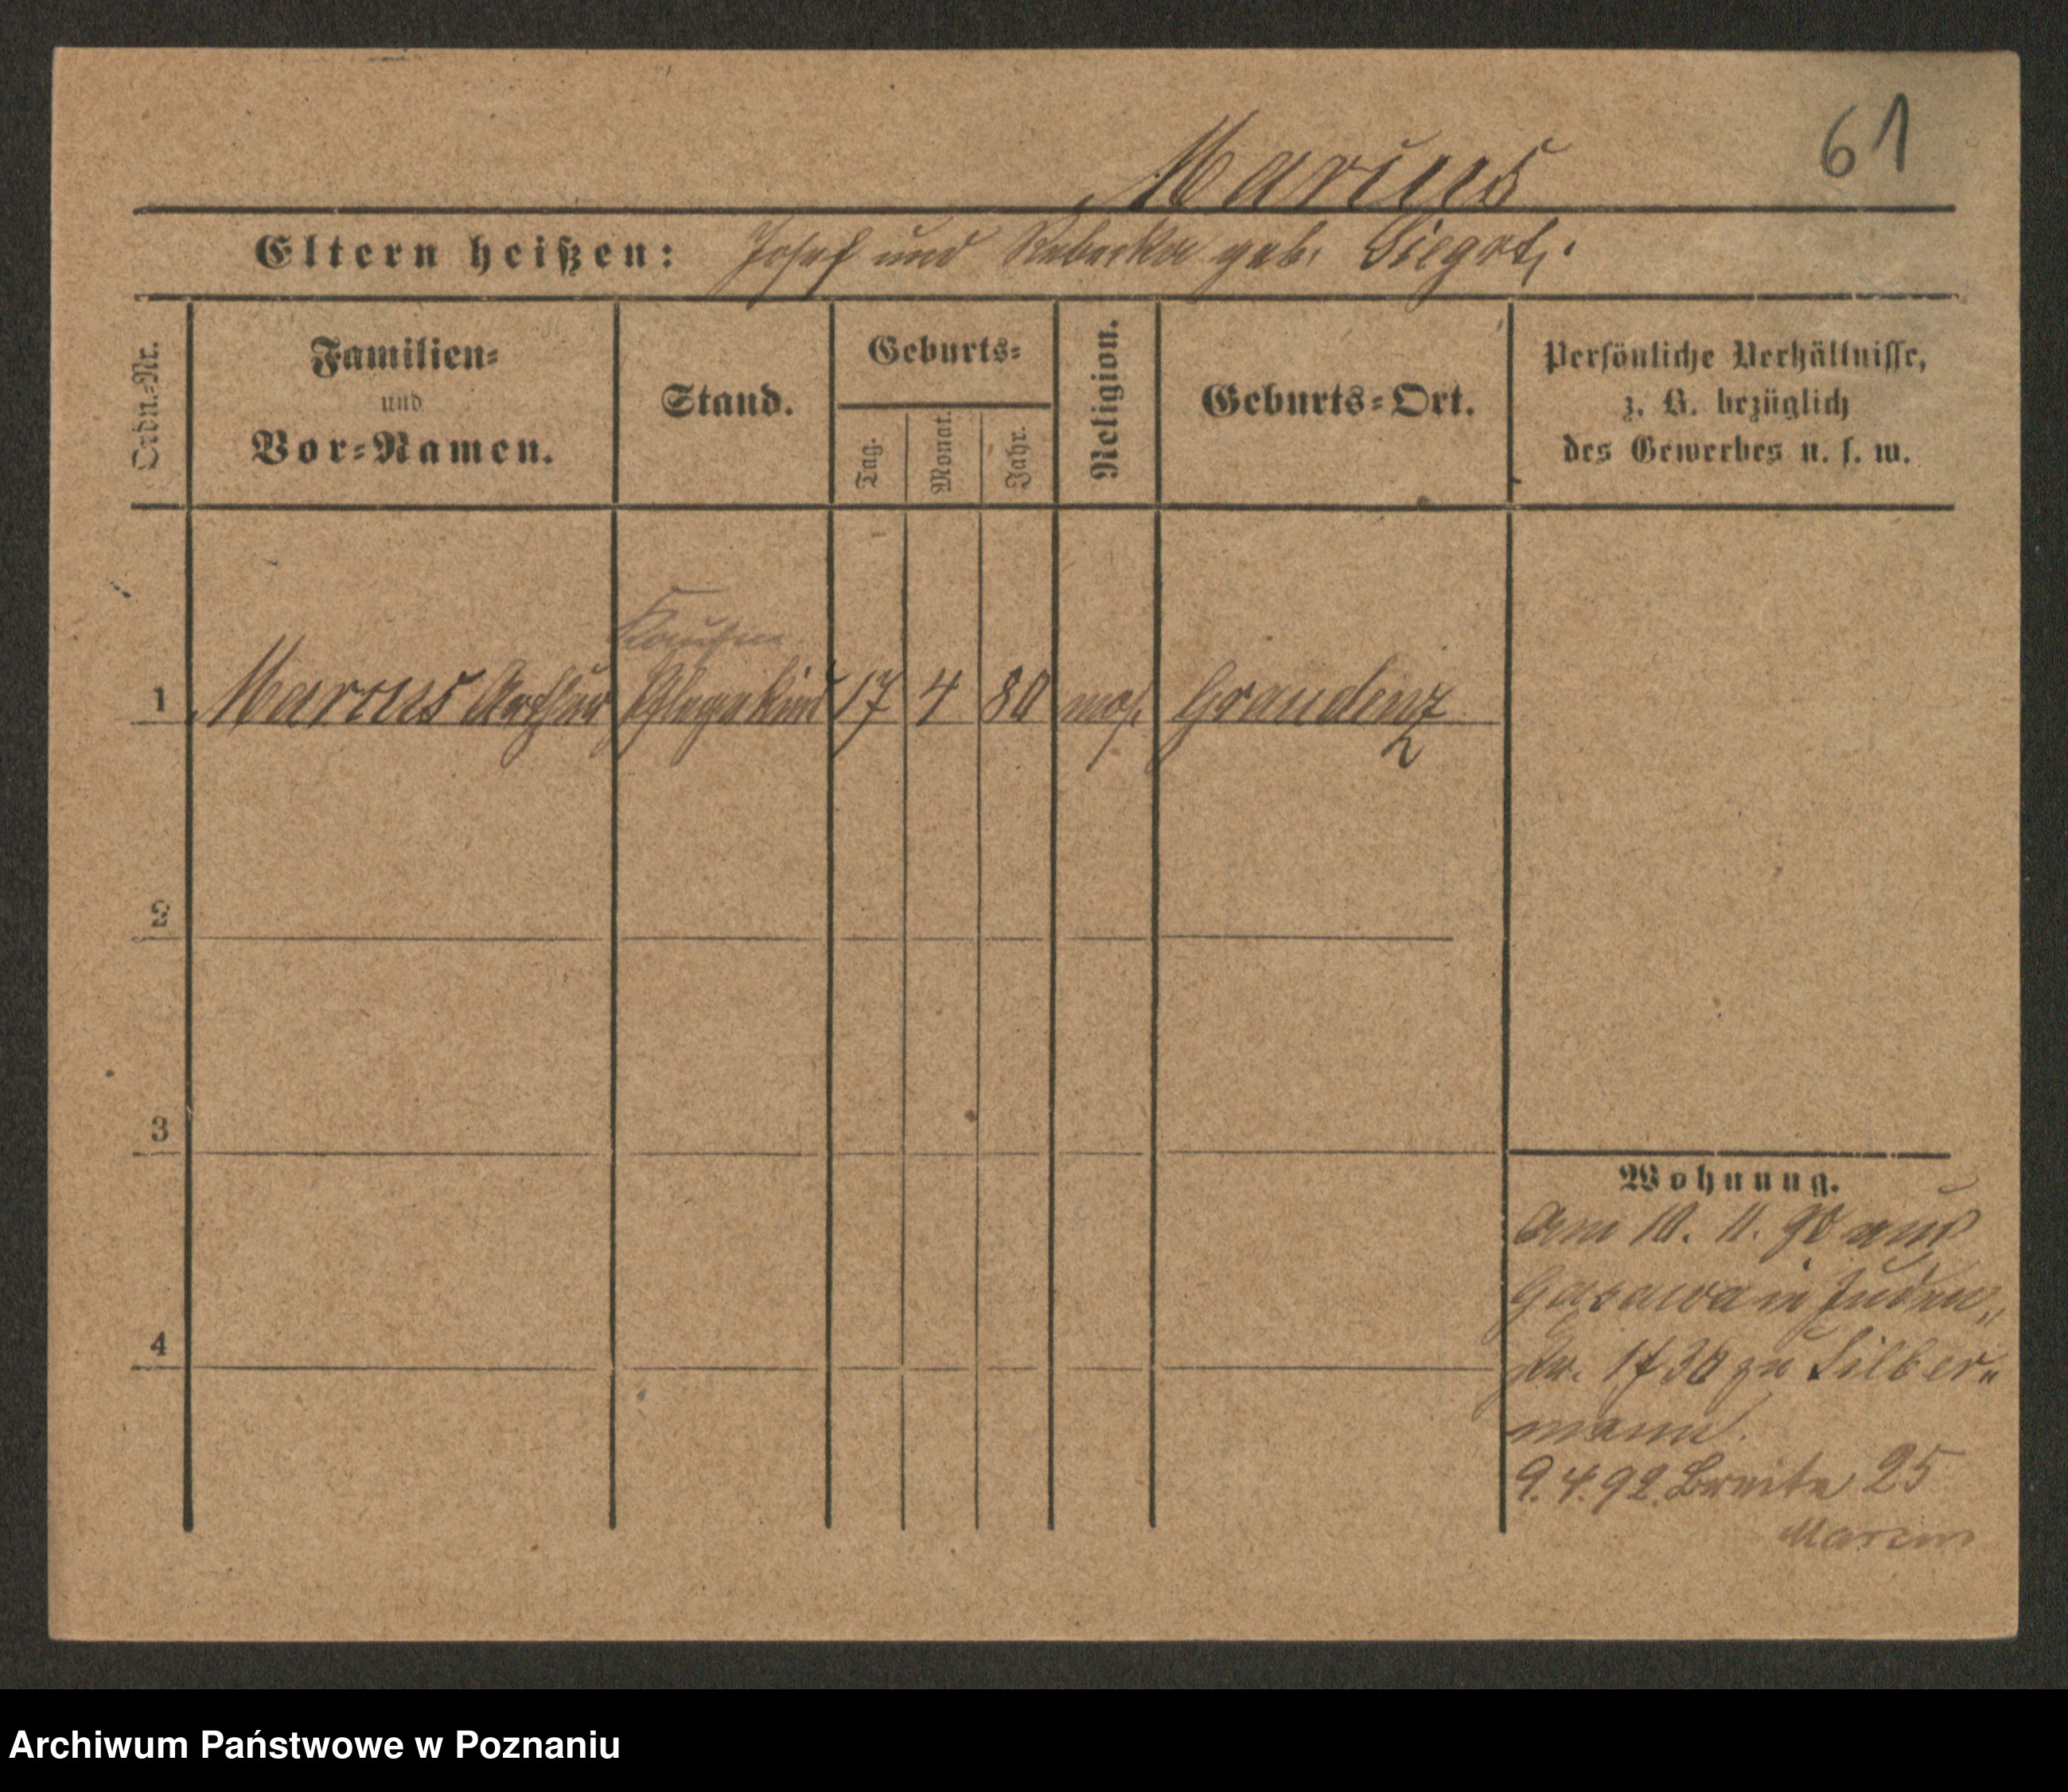 61
Marcus
Eltern heißen: Josef und Rebecka geb.
Ordn.-Nr.
Familien-
und
Vor-Namen.
Stand.
Geburts-
Tag.
Monat.
Jahr.
Religion.
Geburts-Ort.
Persönliche Verhältnisse,
z. B. bezüglich
des Gewerbes u. s. w.
Kaufm.
1 Marcus Arthur Pflegekind 17 4 80 mos. Graudenz
2
3
4
Wohnung.
Am 10. 11. 90 aus
Gasawa in Juden-
zu Silber-
mann.
9. 4. 92. Breite 25
Marcus
Archiwum Państwowe w Poznaniu